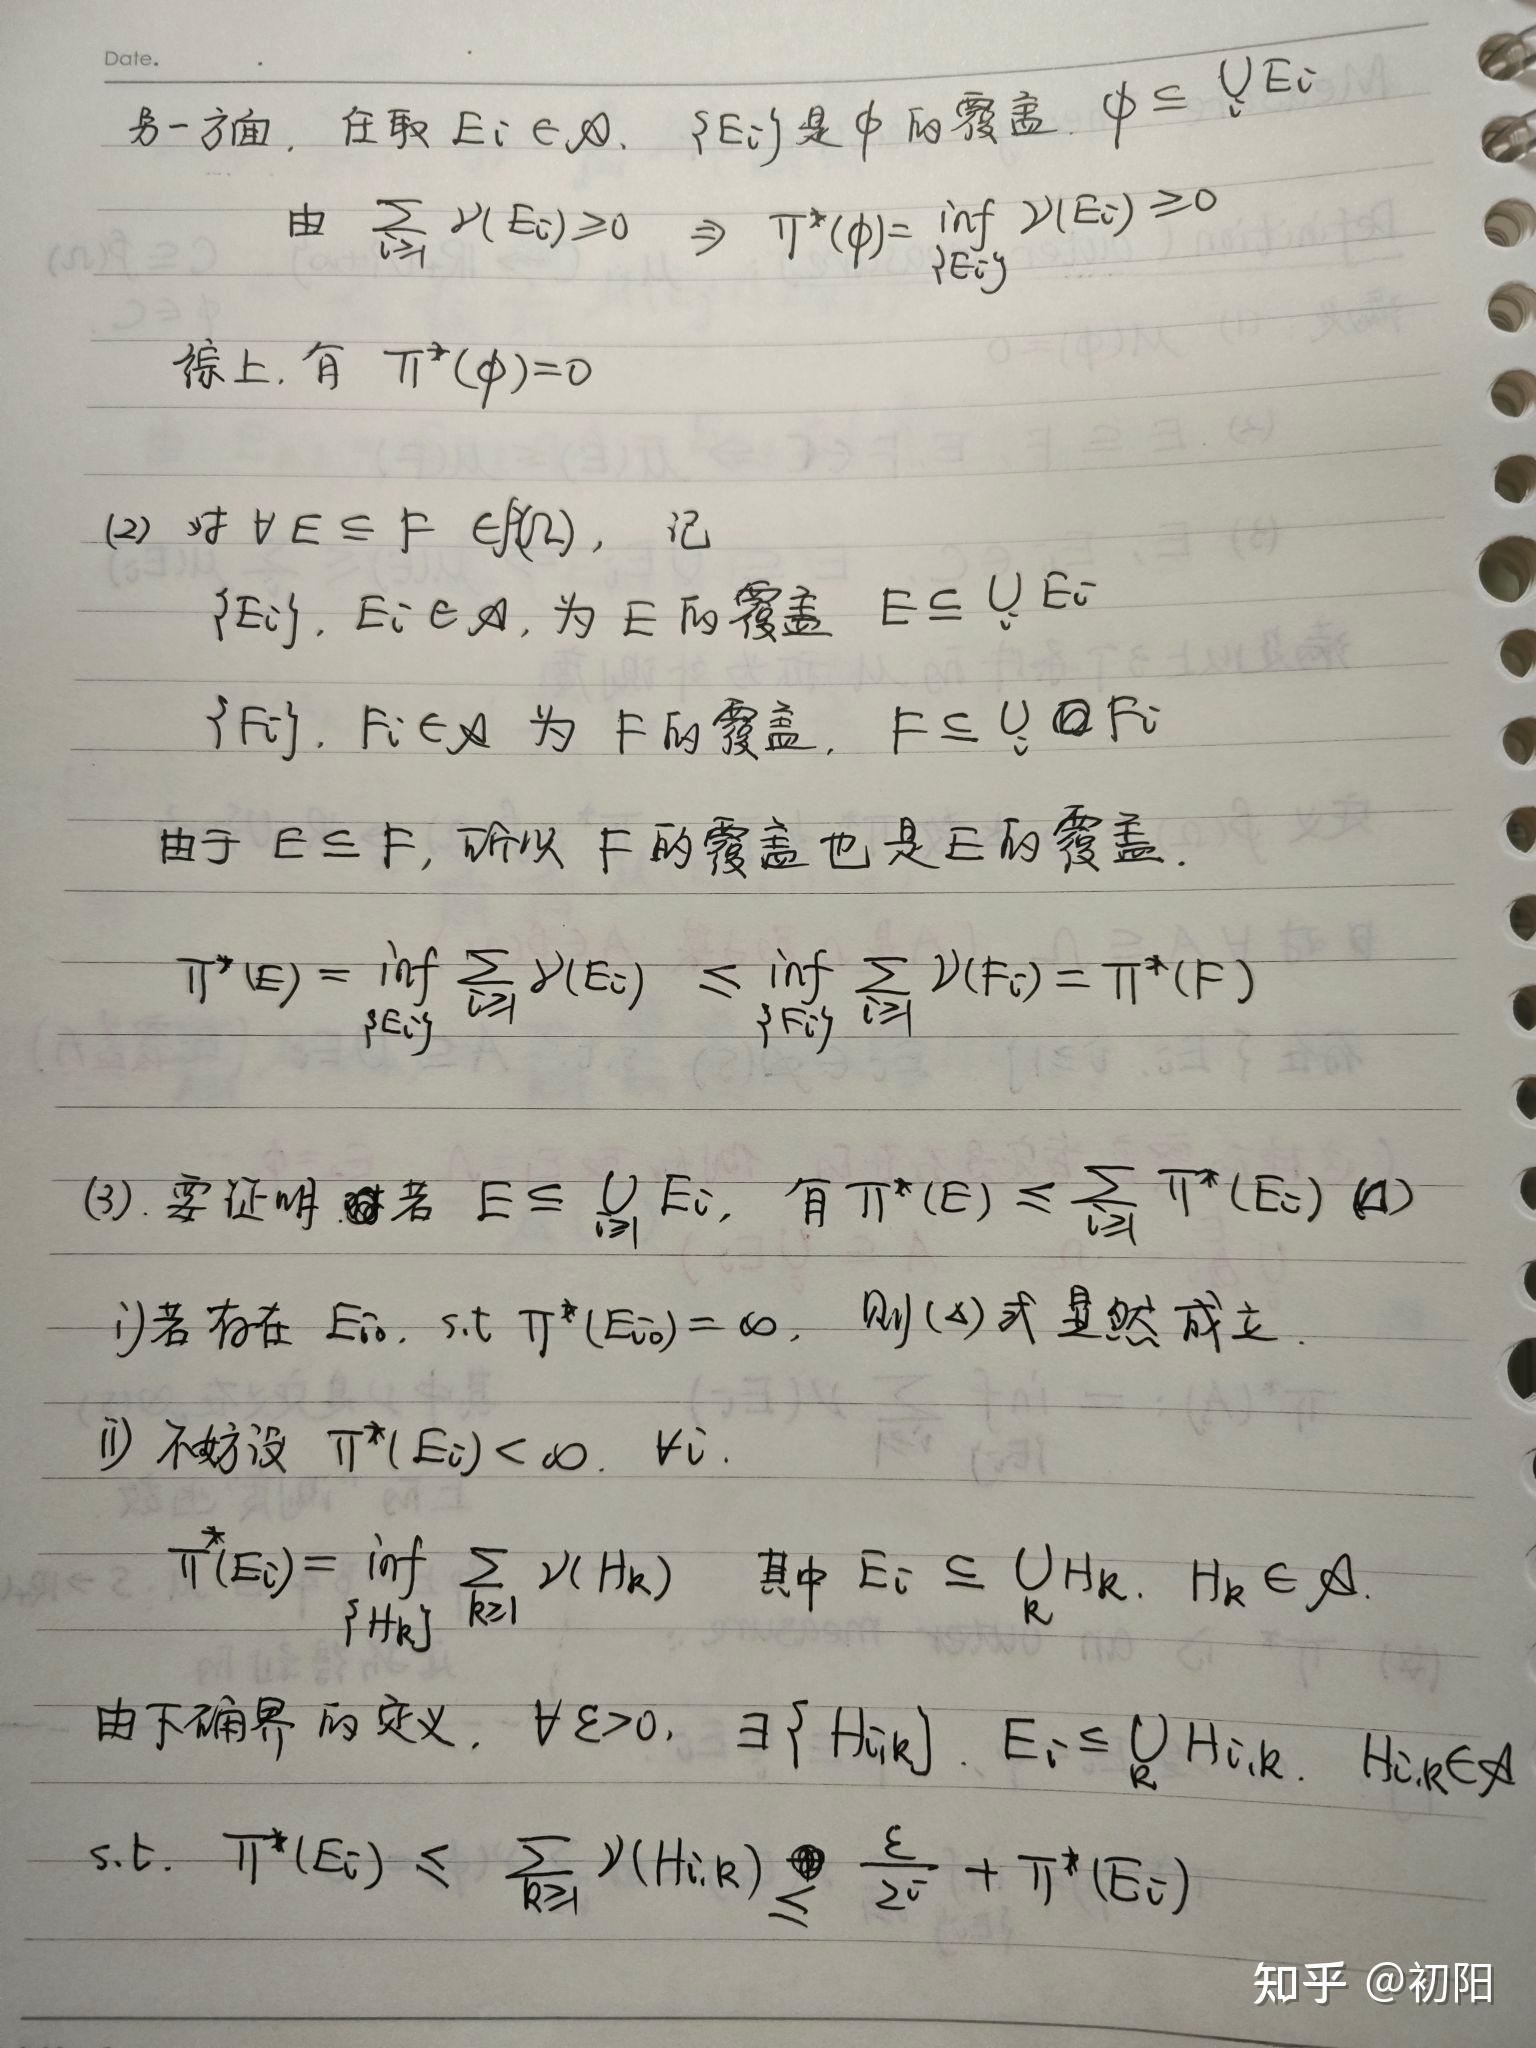 Date.
另一方面, 任取 Ei ∈ 𝒜. {Ei}是 ϕ 的覆盖. ϕ ⊆ ∪_i Ei
由 ∑_{i≥1} ν(Ei) ≥ 0 ⇒ π*(ϕ) = inf_{{Ei}} ν(Ei) ≥ 0
综上. 有 π*(ϕ) = 0
(2) 对 ∀ E ⊆ F ∈ 𝒫(Ω), 记
{Ei}. Ei ∈ 𝒜, 为 E 的覆盖 E ⊆ ∪_i Ei
{Fi}. Fi ∈ 𝒜 为 F 的覆盖, F ⊆ ∪_i Fi
由于 E ⊆ F, 所以 F 的覆盖也是 E 的覆盖.
π*(E) = inf_{{Ei}} ∑_{i≥1} ν(Ei) ≤ inf_{{Fi}} ∑_{i≥1} ν(Fi) = π*(F)
(3). 要证明 若 E ⊆ ∪_{i≥1} Ei, 有 π*(E) ≤ ∑_{i≥1} π*(Ei) (Δ)
i) 若存在 E_{i0}, s.t π*(E_{i0}) = ∞, 则(Δ)式显然成立.
ii) 不妨设 π*(Ei) < ∞. ∀i.
π*(Ei) = inf_{{Hk}} ∑_{k≥1} ν(Hk) 其中 Ei ⊆ ∪_k Hk. Hk ∈ 𝒜.
由下确界的定义, ∀ε>0, ∃{H_{i,k}}. Ei ⊆ ∪_k H_{i,k}. H_{i,k} ∈ 𝒜
s.t. π*(Ei) ≤ ∑_{k≥1} ν(H_{i,k}) ≤ ε/2^i + π*(Ei)
知乎 @初阳